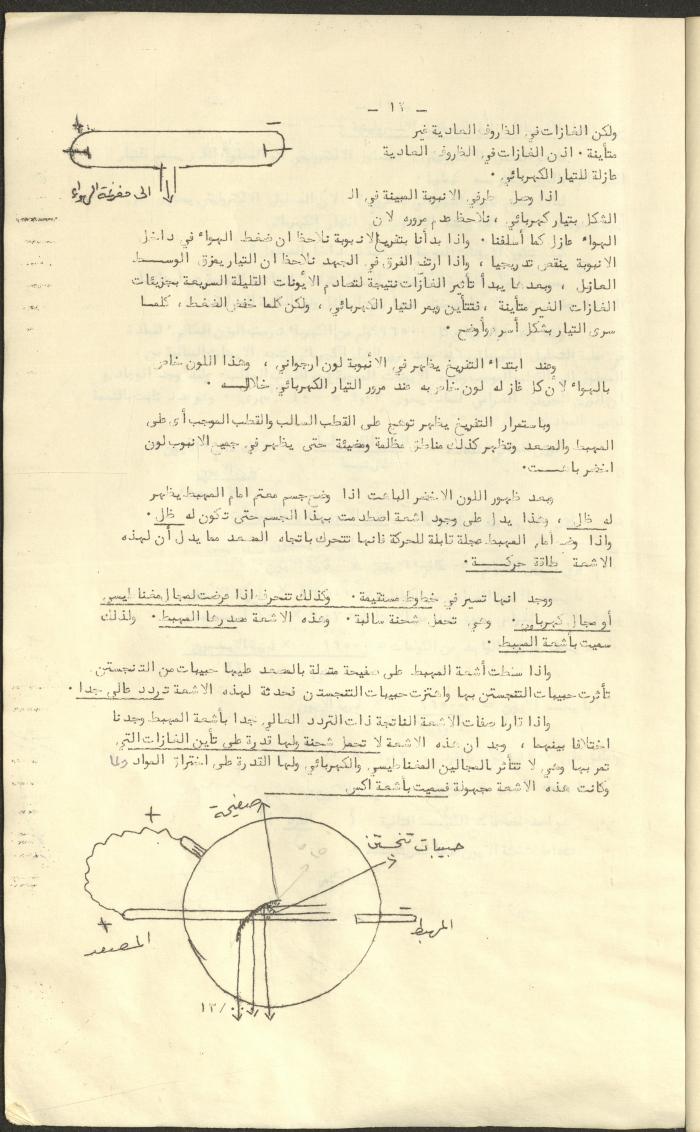 - ١٢ -
ولكن الغازات في الظروف العادية غير
متأينة ٠ اذن الغازات في الظروف العادية
عازلة للتيار الكهربائي ٠
الى مفرغة الهواء
اذا وصل طرفي الانبوبة المبينة في الـ
الشكل بتيار كهربائي ، نلاحظ عدم مروره لان
الهواء عازل كما أسلفنا ٠ واذا بدأنا بتفريغ الانبوبة نلاحظ ان ضغط الهواء في داخل
الانبوبة ينقص تدريجيا ، واذا ارتفع الفرق في الجهد نلاحظ ان التيار يمزق الوسط
العازل ، وبعدها يبدأ تأثير الغازات نتيجة لتصادم الأيونات القليلة السريعة بجزيئات
الغازات الغير متأينة ، فتتأين ويمر التيار الكهربائي ، ولكن كلما خفض الضغط ، كلما
سرى التيار بشكل أسرع وأوضح ٠
وعند ابتداء التفريغ يظهر في الانبوبة لون ارجواني ، وهذا اللون خاص
بالهواء لأن كل غاز له لون خاص به عند مرور التيار الكهربائي خلاله ٠
وباستمرار التفريغ يظهر توهج على القطب السالب والقطب الموجب أى على
المهبط والمصعد وتظهر كذلك مناطق مظلمة ومضيئة حتى يظهر في جميع الانبوب لون
اخضر باهت ٠
وبعد ظهور اللون الاخضر الباهت اذا وضع جسم معتم امام المهبط يظهر
له ظل ، وهذا يدل على وجود اشعة اصطدمت بهذا الجسم حتى تكون له ظل ٠
واذا وضع أمام المهبط عجلة قابلة للحركة فانها تتحرك باتجاه المصعد مما يدل أن لهذه
الاشعة طاقة حركة ٠
ووجد انها تسير في خطوط مستقيمة ٠ وكذلك تنحرف اذا عرضت لمجال مغناطيسي
أو مجال كهربائي ٠ وهي تحمل شحنة سالبة ٠ وهذه الاشعة مصدرها المهبط ٠ ولذلك
سميت بأشعة المهبط ٠
واذا سلطت أشعة المهبط على صفيحة متصلة بالمصعد عليها حبيبات من التنجستن
تأثرت حبيبات التنجستن بها واهتزت حبيبات التنجستن محدثة لهذه الاشعة تردد عالي جدا ٠
واذا قارنا صفات الاشعة الناتجة ذات التردد العالي جدا بأشعة المهبط وجدنا
اختلافا بينهما ، وجد ان هذه الاشعة لا تحمل شحنة ولها قدرة على تأين الغازات التي
تمر بها وهي لا تتأثر بالمجالين المغناطيسي والكهربائي ولها القدرة على اختراق المواد ولما
وكانت هذه الاشعة مجهولة فسميت بأشعة اكس
صفيحة
حبيبات تنجستن
المهبط
المصعد